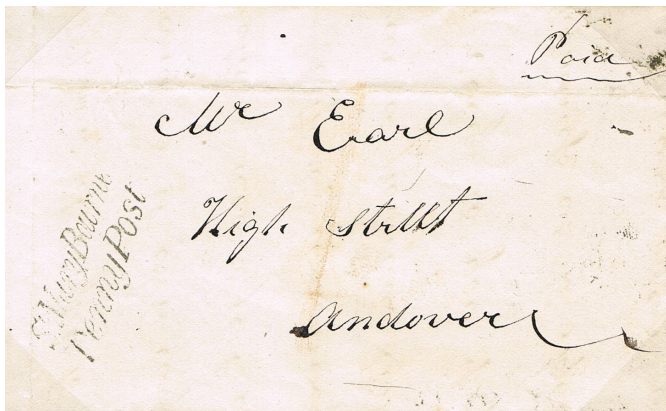 Paid
Mr Earl
High Street
Andover
St Mary Bourne
Penny Post